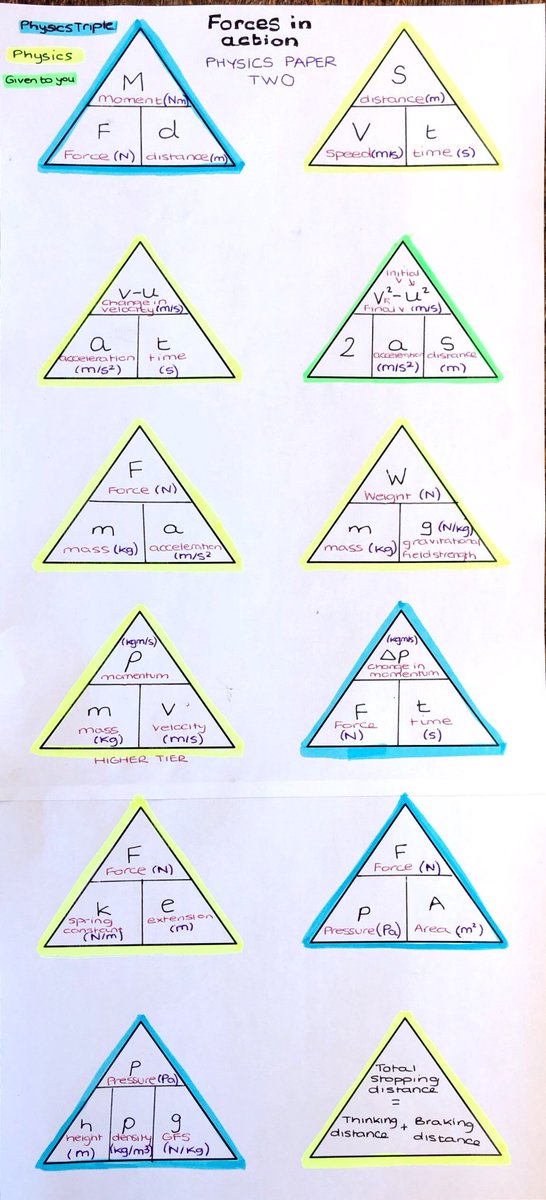 Physics Triple
Physics
Given to you
Forces in
action
PHYSICS PAPER
TWO
M
moment (Nm)
F
Force (N)
d
distance (m)
S
distance (m)
V
Speed (m/s)
t
time (s)
v-u
change in
velocity (m/s)
a
acceleration
(m/s²)
t
time
(s)
initial
v
V²-u²
Final v (m/s)
2
a
acceleration
(m/s²)
S
distance
(m)
F
Force (N)
m
mass (kg)
a
acceleration
(m/s²
W
Weight (N)
m
mass (kg)
g (N/kg)
gravitational
field strength
(kgm/s)
p
momentum
m
mass
(kg)
V
velocity
(m/s)
HIGHER TIER
(kgm/s)
Δp
change in
momentum
F
Force
(N)
t
time
(s)
F
Force (N)
k
spring
constant
(N/m)
e
extension
(m)
F
Force (N)
P
Pressure (Pa)
A
Area (m²)
P
Pressure (Pa)
h
height
(m)
ρ
density
(kg/m³)
g
GFS
(N/kg)
Total
Stopping
distance
=
Thinking + Braking
distance distance